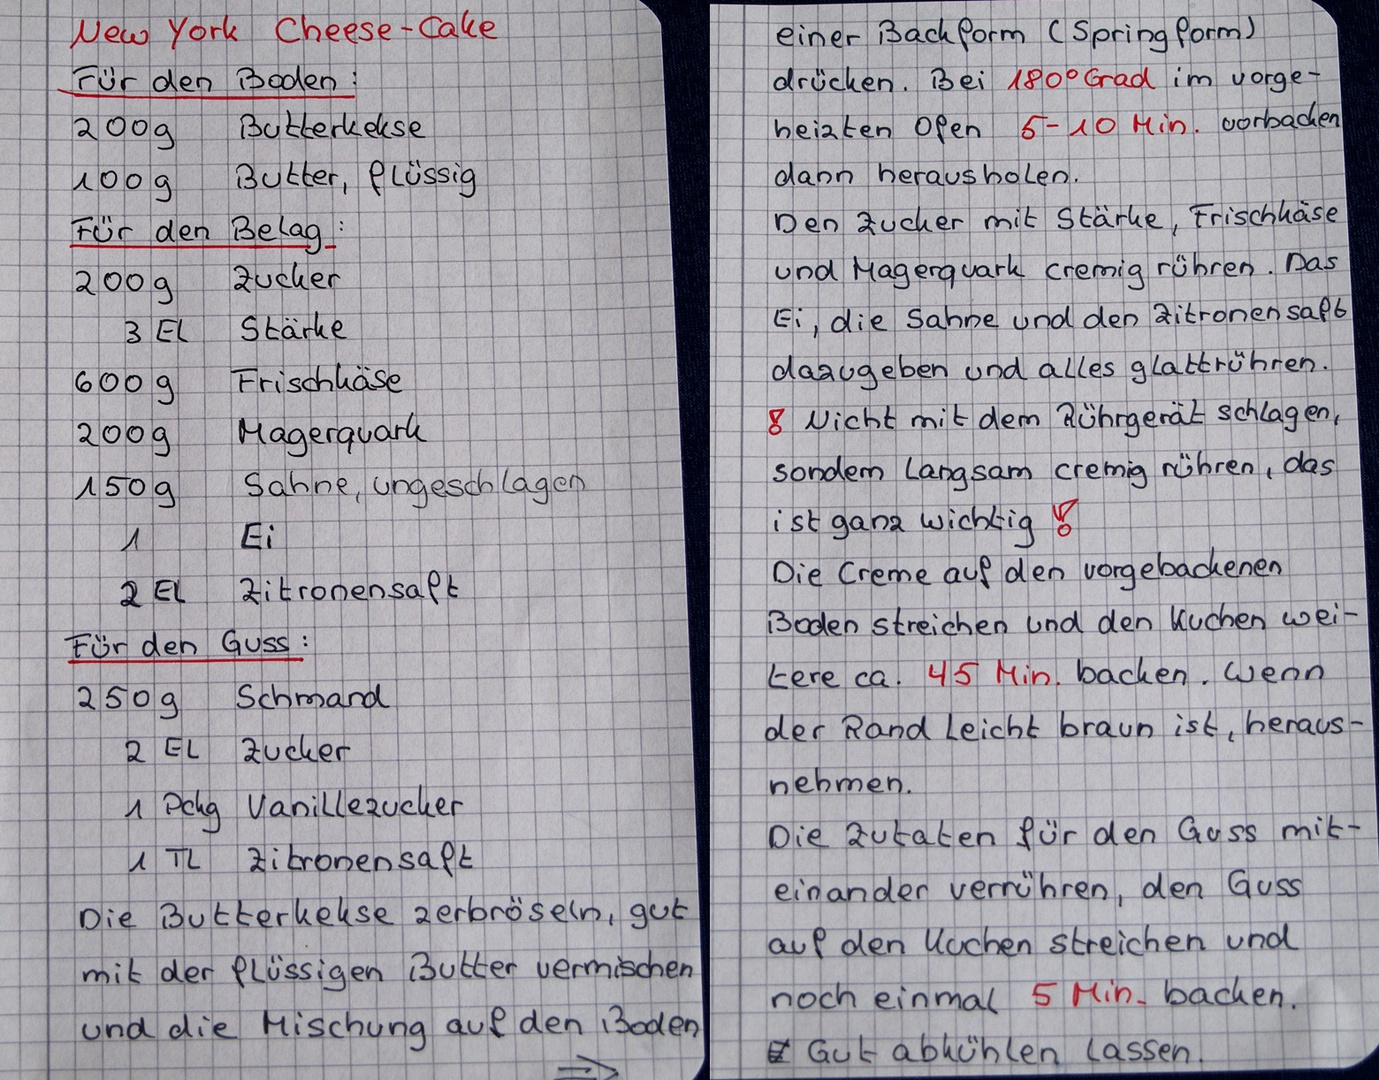 New York Cheese-Cake
Für den Boden:
200g Butterkekse
100g Butter, flüssig
Für den Belag:
200g Zucker
3 EL Stärke
600g Frischkäse
200g Magerquark
150g Sahne, ungeschlagen
1 Ei
2 EL Zitronensaft
Für den Guss:
250g Schmand
2 EL Zucker
1 Pckg Vanillezucker
1 TL Zitronensaft
Die Butterkekse zerbröseln, gut
mit der flüssigen Butter vermischen
und die Mischung auf den Boden
⇒
einer Backform (Springform)
drücken. Bei 180° Grad im vorge-
heizten Ofen 5-10 Min. vorbacken
dann herausholen.
Den Zucker mit Stärke, Frischkäse
und Magerquark cremig rühren. Das
Ei, die Sahne und den Zitronensaft
dazugeben und alles glattrühren.
! Nicht mit dem Rührgerät schlagen,
sondern langsam cremig rühren, das
ist ganz wichtig !
Die Creme auf den vorgebackenen
Boden streichen und den Kuchen wei-
tere ca. 45 Min. backen. Wenn
der Rand leicht braun ist, heraus-
nehmen.
Die Zutaten für den Guss mit-
einander verrühren, den Guss
auf den Kuchen streichen und
noch einmal 5 Min. backen.
Gut abkühlen lassen.